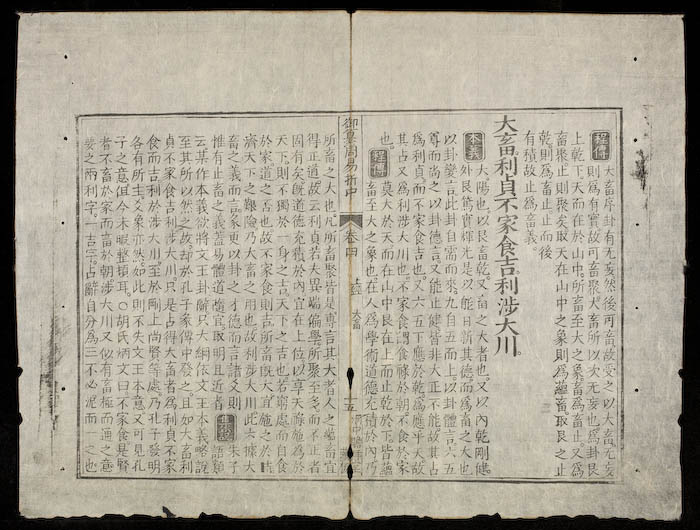 程傳 大畜序卦有无妄然後可畜故受之以大畜无妄
則爲有實故可畜聚大畜所以次无妄也爲卦艮
上乾下天而在於山中所畜至大之象爲畜止又爲
畜聚止則聚矣取天在山中之象則爲蘊畜取艮之止
乾則爲畜止止而後
有積故止爲畜義
大畜利貞不家食吉利涉大川
本義 大陽也以艮畜乾又畜之大者也又以內乾剛健
外艮篤實輝光是以能日新其德而爲畜之大也
以卦變言此卦自需而來九自五而上以卦體言六五
尊而尚之以卦德言又能止健皆非大正不能故其占
爲利貞而不家食吉也又六五下應於乾爲應乎天故
其占又爲利涉大川也不家食謂食祿於朝不食於家
也 程傳 莫大於天而在山中艮在上而止乾於下皆蘊
畜至大之象也在人爲學術道德充積於內乃
御纂周易折中 卷四 上經 大畜 五
所畜之大也凡所畜聚皆是專言其大者人之蘊畜宜
得正道故云利貞若夫異端偏學所聚至多而不正者
固有矣旣道德充積於內宜在上位以享天祿施爲於
天下則不獨於一身之吉天下之吉也若窮處而自食
於家道之否也故不家食則吉所畜旣大宜施之於時
濟天下之艱險乃大畜之用也故利涉大川此只據大
畜之義而言彖更以卦之才德而言諸爻則
惟有止畜之義蓋易體道隨宜取明且近者 集說 朱子語類
云某作本義欲將文王卦辭只大綱依文王本義略說
至其所以然之故却於孔子彖傳中發之且如大畜利
貞不家食吉利涉大川只是占得大畜者爲利貞不家
食而吉利於涉大川至於剛上尚賢等處乃孔子發明
各有所主爻象亦然如此則不失文王本意又可見孔
子之意但今未暇整頓耳○胡氏炳文曰不家食是賢
者不畜於家而畜於朝涉大川又似有畜極而通之意
要之兩利字一吉字占辭自分爲三不必泥而一之也